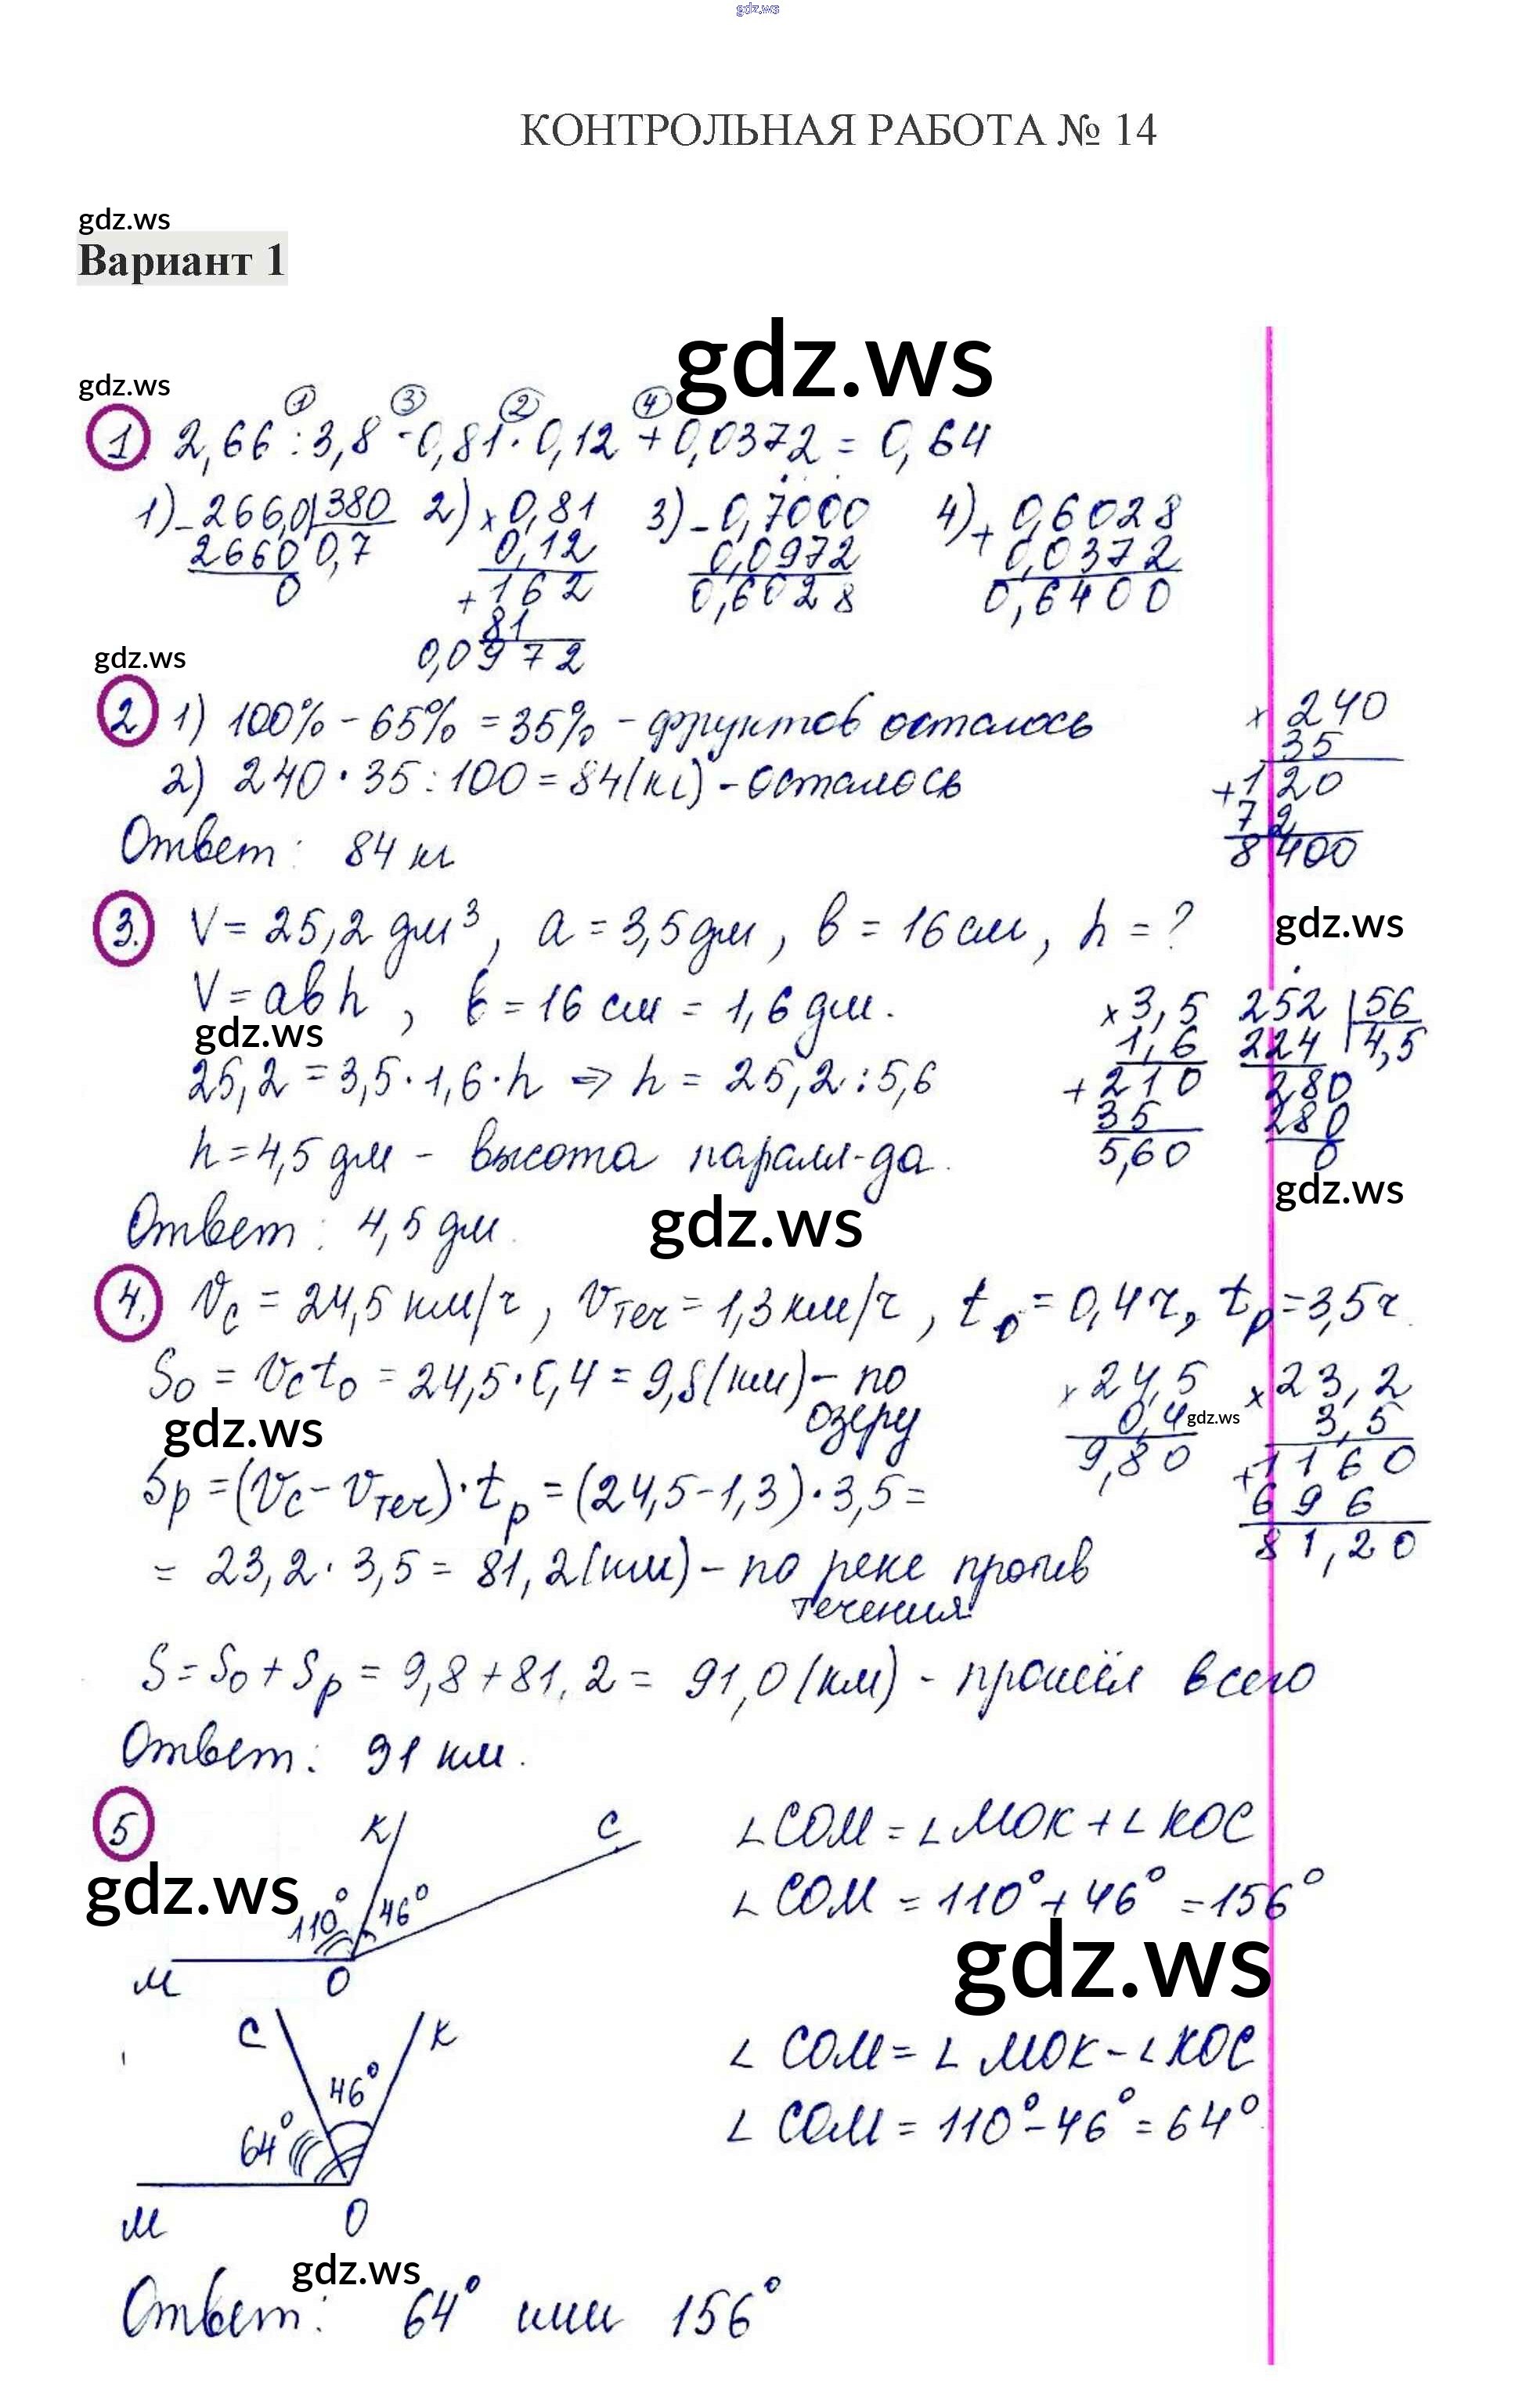 gdz.ws
КОНТРОЛЬНАЯ РАБОТА № 14
gdz.ws
Вариант 1
gdz.ws
gdz.ws
① ③ ② ④
1. 2,66 : 3,8 - 0,81 · 0,12 + 0,0372 = 0,64
1) - 266,0 | 380 2) × 0,81 3) - 0,7000 4) + 0,6028
2660 0,7 0,12 0,0972 0,0372
0 + 162 0,6028 0,6400
81
0,0972
gdz.ws
2 1) 100% - 65% = 35% - фруктов осталось
2) 240 · 35 : 100 = 84(кг) - осталось
Ответ: 84 кг
× 240
35
+ 120
72
8400
3. V = 25,2 дм³, a = 3,5 дм, b = 16 см, h = ?
gdz.ws
V = abh, b = 16 см = 1,6 дм.
gdz.ws
25,2 = 3,5 · 1,6 · h ⇒ h = 25,2 : 5,6
h = 4,5 дм - высота паралл-да.
× 3,5 252 | 56
1,6 224 4,5
+ 210 280
35 280
5,60 0
gdz.ws
Ответ: 4,5 дм.
gdz.ws
4. Vc = 24,5 км/ч, Vтеч = 1,3 км/ч, t₀ = 0,4 ч, tр = 3,5 ч.
S₀ = Vct₀ = 24,5 · 0,4 = 9,8 (км) - по
озеру
gdz.ws
Sр = (Vc - Vтеч) · tр = (24,5 - 1,3) · 3,5 =
= 23,2 · 3,5 = 81,2 (км) - по реке против
течения
× 24,5 × 23,2
0,4 3,5
gdz.ws
9,80 + 1160
696
81,20
S = S₀ + Sр = 9,8 + 81,2 = 91,0 (км) - прошёл всего
Ответ: 91 км.
5
K C
110° 46°
M O
gdz.ws
∠COM = ∠MOK + ∠KOC
∠COM = 110° + 46° = 156°
gdz.ws
C K
46°
64°
M O
∠COM = ∠MOK - ∠KOC
∠COM = 110° - 46° = 64°
gdz.ws
Ответ: 64° или 156°